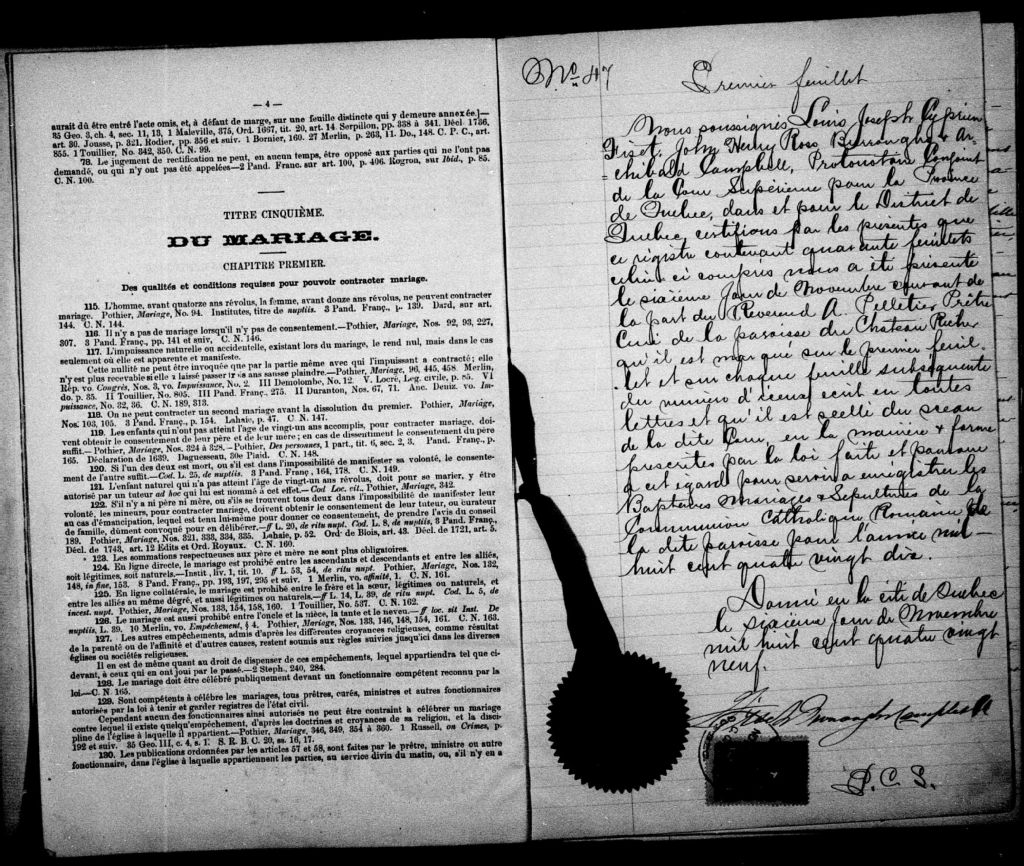 — 4 —
aurait dû être entré l'acte omis, et, à défaut de marge, sur une feuille distincte qui y demeure annexée.]—
35 Geo. 3, ch. 4, sec. 11, 13, 1 Maleville, 375, Ord. 1667, tit. 20, art. 14. Serpillon, pp. 338 à 341. Décl. 1736,
art. 30. Jousse, p. 321, Rodier, pp. 356 et suiv. 1 Bornier, 160. 27 Merlin, p. 263, 11. Do., 148. C. P. C., art.
855. 1 Touillier, No. 342, 350. C. N. 99.
78. Le jugement de rectification ne peut, en aucun temps, être opposé aux parties qui ne l'ont pas
demandé, ou qui n'y ont pas été appelées—2 Pand. Franc. sur art. 100, p. 406. Rogron, sur Ibid., p. 85.
C. N. 100.
TITRE CINQUIÈME.
DU MARIAGE.
CHAPITRE PREMIER.
Des qualités et conditions requises pour pouvoir contracter mariage.
115. L'homme, avant quatorze ans révolus, la femme, avant douze ans révolus, ne peuvent contracter
mariage. Pothier, Mariage, No. 94. Institutes, titre de nuptiis. 3 Pand. Franç., p. 139. Dard, sur art.
144. C. N. 144.
116. Il n'y a pas de mariage lorsqu'il n'y pas de consentement.—Pothier, Mariage, Nos. 92, 93, 227,
307. 3 Pand. Franç., pp. 141 et suiv, C. N. 146.
117. L'impuissance naturelle ou accidentelle, existant lors du mariage, le rend nul, mais dans le cas
seulement où elle est apparente et manifeste.
Cette nullité ne peut être invoquée que par la partie même avec qui l'impuissant a contracté; elle
n'y est plus recevable si elle a laissé passer trois ans sans se plaindre.—Pothier, Mariage, 96, 445, 458. Merlin,
Rép. vo. Congrès, Nos. 3, vo. Impuissance, No. 2. III Demolombe, No. 12. V. Locré, Leg. civile, p. 85. VI
do. p. 35. II Touillier, No. 805. III Pand. Franç., 275. II Duranton, Nos. 67, 71. Anc. Deniz. vo. Im-
puissance, No. 32, 36. C. N. 189, 313.
118. On ne peut contracter un second mariage avant la dissolution du premier. Pothier, Mariage,
Nos. 103, 105. 3 Pand. Franç., p. 154. Lahaie, p. 47. C. N. 147.
119. Les enfants qui n'ont pas atteint l'âge de vingt-un ans accomplis, pour contracter mariage, doi-
vent obtenir le consentement de leur père et de leur mère; en cas de dissentiment le consentement du père
suffit.—Pothier, Mariage, Nos. 324 à 328.—Pothier, Des personnes, 1 part., tit. 6, sec. 2, 3. Pand. Franç., p.
165. Déclaration de 1639. Daguesseau, 30e Plaid. C. N. 148.
120. Si l'un des deux est mort, ou s'il est dans l'impossibilité de manifester sa volonté, le consente-
ment de l'autre suffit.—Cod. L. 25, de nuptiis. 3 Pand. Franç., 164, 178. C. N. 149.
121. L'enfant naturel qui n'a pas atteint l'âge de vingt-un ans révolus, doit pour se marier, y être
autorisé par un tuteur ad hoc qui lui est nommé à cet effet.—Cod Loc. cit., Pothier, Mariage, 342.
122. S'il n'y a ni père ni mère, ou s'ils se trouvent tous deux dans l'impossibilité de manifester leur
volonté, les mineurs, pour contracter mariage, doivent obtenir le consentement de leur tuteur, ou curateur
au cas d'émancipation, lequel est tenu lui-même pour donner ce consentement, de prendre l'avis du conseil
de famille, dûment convoqué pour en délibérer.—ff L. 20, de ritu nupt. Cod. L. 8, de nuptiis, 3 Pand. Franç.,
189. Pothier, Mariage, Nos. 321, 333, 334, 335. Lahaie, p. 52. Ord. de Blois, art. 43. Décl. de 1721, art. 5.
Décl. de 1743, art. 12 Edits et Ord. Royaux. C. N. 160.
123. Les sommations respectueuses aux père et mère ne sont plus obligatoires.
124. En ligne directe, le mariage est prohibé entre les ascendants et descendants et entre les alliés,
soit légitimes, soit naturels.—Instit., liv. 1, tit. 10. ff L. 53, 54, de ritu nupt. Pothier, Mariage, Nos. 132,
148, in fine, 153. 3 Pand. Franç., pp. 193, 197, 295 et suiv. 1 Merlin, vo. affinité, 1. C. N. 161.
125. En ligne collatérale, le mariage est prohibé entre le frère et la sœur, légitimes ou naturels, et
entre les alliés au même dégré, et aussi légitimes ou naturels.—ff L. 14, L. 39, de ritu nupt. Cod. L. 5, de
incest. nupt. Pothier, Mariage, Nos. 133, 154, 158, 160. 1 Touillier, No. 537. C. N. 162.
126. Le mariage est aussi prohibé entre l'oncle et la nièce, la tante et le neveu.—ff loc. sit Inst. De
nuptiis, L. 39. 10 Merlin, vo. Empêchement, § 4. Pothier, Mariage, Nos. 133, 146, 148, 154, 161. C. N. 163.
127. Les autres empêchements, admis d'après les différentes croyances religieuses, comme résultat
de la parenté ou de l'affinité et d'autres causes, restent soumis aux règles suivies jusqu'ici dans les diverses
églises ou sociétés religieuses.
Il en est de même quant au droit de dispenser de ces empêchements, lequel appartiendra tel que ci-
devant, à ceux qui en ont joui par le passé.—2 Steph., 240, 284.
128. Le mariage doit être célébré publiquement devant un fonctionnaire compétent reconnu par la
loi.—C. N. 165.
129. Sont compétents à célébrer les mariages, tous prêtres, curés, ministres et autres fonctionnaires
autorisés par la loi à tenir et garder registres de l'état civil.
Cependant aucun des fonctionnaires ainsi autorisés ne peut être contraint à célébrer un mariage
contre lequel il existe quelqu'empêchement, d'après les doctrines et croyances de sa religion, et la disci-
pline de l'église à laquelle il appartient.—Pothier, Mariage, 346, 349, 354 à 360. 1 Russell, on Crimes, p.
192 et suiv. 35 Geo. III, c. 4, s. 1. S. R. B. C. 20, ss. 16, 17.
130. Les publications ordonnées par les articles 57 et 58, sont faites par le prêtre, ministre ou autre
fonctionnaire, dans l'église à laquelle appartiennent les parties, au service divin du matin, ou, s'il n'y en a
No 47
Premier feuillet
Nous soussignés Louis Joseph Cyprien
Fiset, John Henry Ross Burroughs & Ar-
chibald Campbell, Protonotaire Conjoint
de la Cour Supérieure pour la Province
de Quebec, dans et pour le District de
Quebec, certifions par les présentes que
ce régistre contenant quarante feuillets
celui ci compris nous a été présenté
le sixième jour de Novembre courant de
la part du Révérend A. Pelletier Prêtre
Curé de la paroisse du Chateau Richer
qu'il est marqué sur le premier feuil-
let et sur chaque feuille subséquente
du numéro d'icene écrit en toutes
lettres et qu'il est scellé du sceau
de la dite Cour, en la manière & forme
prescrites par la loi faite et pourvue
a cet egard pour servir a enrégistrer les
Baptêmes Mariages & Sépultures de la
Communion Catholique Romaine de
la dite paroisse pour l'année mil-
huit cent quatre vingt dix
Donné en la cité de Quebec
le sixième jour de Novembre
mil huit cent quatre vingt
neuf.
Fiset Burroughs Campbell
P. C. S.